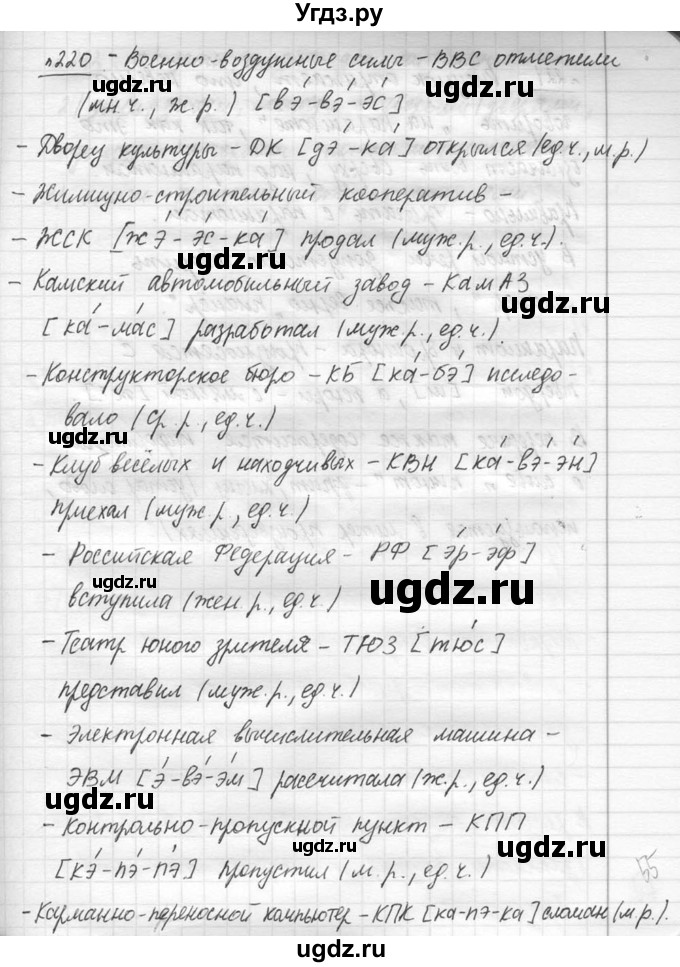 Угдз.ру
№220 – Военно-воздушные силы – ВВС отметили
(мн.ч., ж.р.) [вэ́-вэ́-э́с]
– Дворец культуры – ДК [дэ́-ка́] открылся (ед.ч., м.р.)
– Жилищно-строительный кооператив –
– ЖСК [жэ́-э́с-ка́] продал (муж.р., ед.ч.).
ugdz.ru ugdz.ru
– Камский автомобильный завод – КамАЗ
[ка́-ма́с] разработал (муж.р., ед.ч.).
ugdz.ru
– Конструкторское бюро – КБ [ка́-бэ́] исследо-
вало (ср.р., ед.ч.)
ugdz.ru ugdz.ru
– Клуб весёлых и находчивых – КВН [ка́-вэ́-э́н]
приехал (муж.р., ед.ч.)
– Российская Федерация – РФ [э́р-э́ф]
ugdz.ru ugdz.ru
вступила (жен.р., ед.ч.)
– Театр юного зрителя – ТЮЗ [тю́с]
ugdz.ru
представил (муж.р., ед.ч.)
ugdz.ru
– Электронная вычислительная машина –
ЭВМ [э́-вэ́-э́м] рассчитала (ж.р., ед.ч.)
ugdz.ru ugdz.ru
– Контрольно-пропускной пункт – КПП
[кэ́-пэ́-пэ́] пропустил (м.р., ед.ч.)
55
ugdz.ru
– Карманно-переносной компьютер – КПК [ка-пэ-ка] сломан (м.р.).
ugdz.ru ugdz.ru